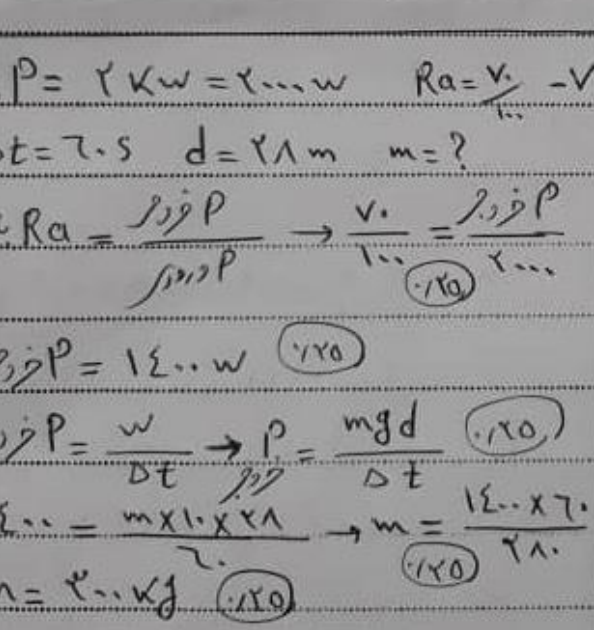 P = ۲ KW = ۲۰۰۰ W Ra = ۷۰/۱۰۰ -۷
t = ۶۰ s d = ۲۸ m m = ?
Ra = P خروجی / P ورودی → ۷۰/۱۰۰ = P خروجی / ۲۰۰۰ ۰/۲۵
P = ۱۴۰۰ W ۰/۲۵
P = W/Δt → P خروجی = mgd/Δt ۰/۲۵
= m×۱۰×۲۸/۶۰ → m = ۱۴۰۰×۶۰/۲۸۰ ۰/۲۵
= ۳۰۰ kg ۰/۲۵